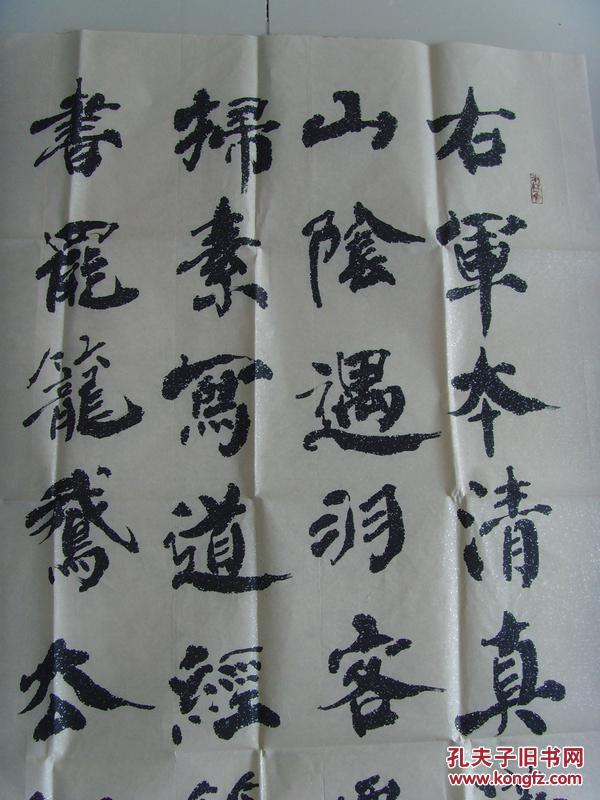 右軍本清真
山陰遇羽客
掃素寫道經
書罷籠鵝去
孔夫子旧书网
www.kongfz.com